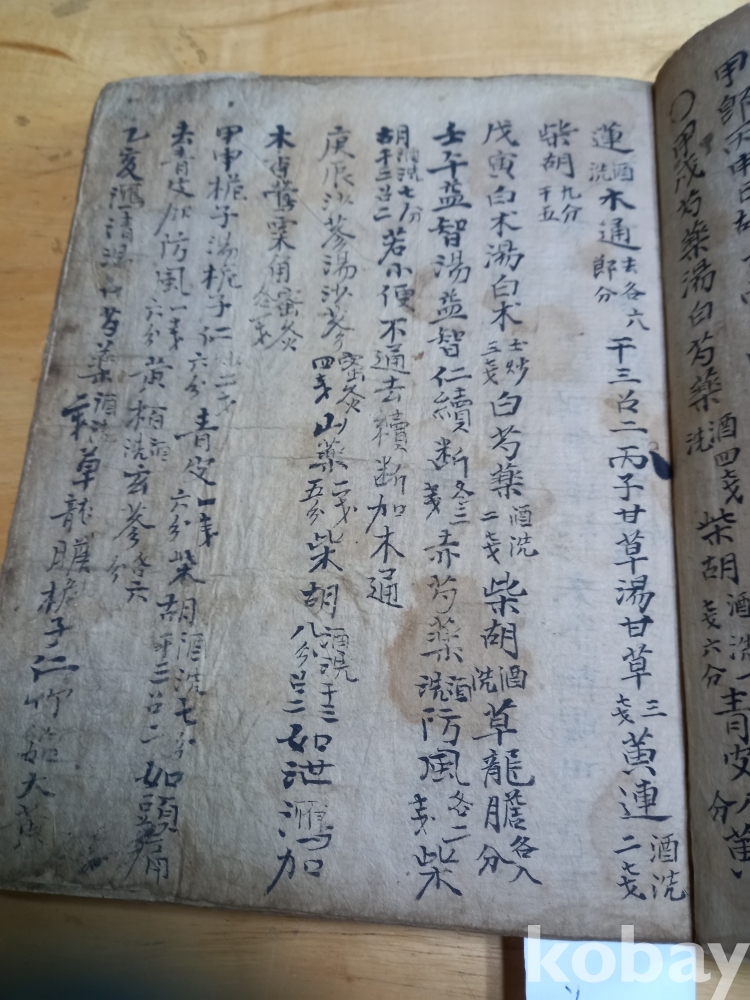 甲戌芍藥湯白芍藥酒洗四戔柴胡酒洗一戔六分青皮
蓮酒洗木通去各六分干三召二丙子甘草湯甘草三戔黃連酒洗二戔
柴胡九分干五
戊寅白朮湯白朮土炒三戔白芍藥酒洗二戔柴胡酒洗草龍膽各八分
壬午益智湯益智仁續斷各三戔赤芍藥酒洗防風各二戔柴
胡酒洗七分干三召二若小便不通去續斷加木通
庚辰沙參湯沙參蜜灸四戔山藥二戔五分柴胡酒洗八分干三召二如泄瀉加
木罌粟角蜜灸各戔
甲申梔子湯梔子仁二戔六分青皮一戔六分柴胡酒洗七分干三召二如頭痛
去青皮加防風一戔六分黃栢酒洗玄參各六分
乙亥瀉清湯芍藥酒洗草龍膽梔子仁竹大黃
kobay